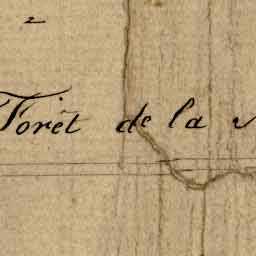 2
Forêt de la